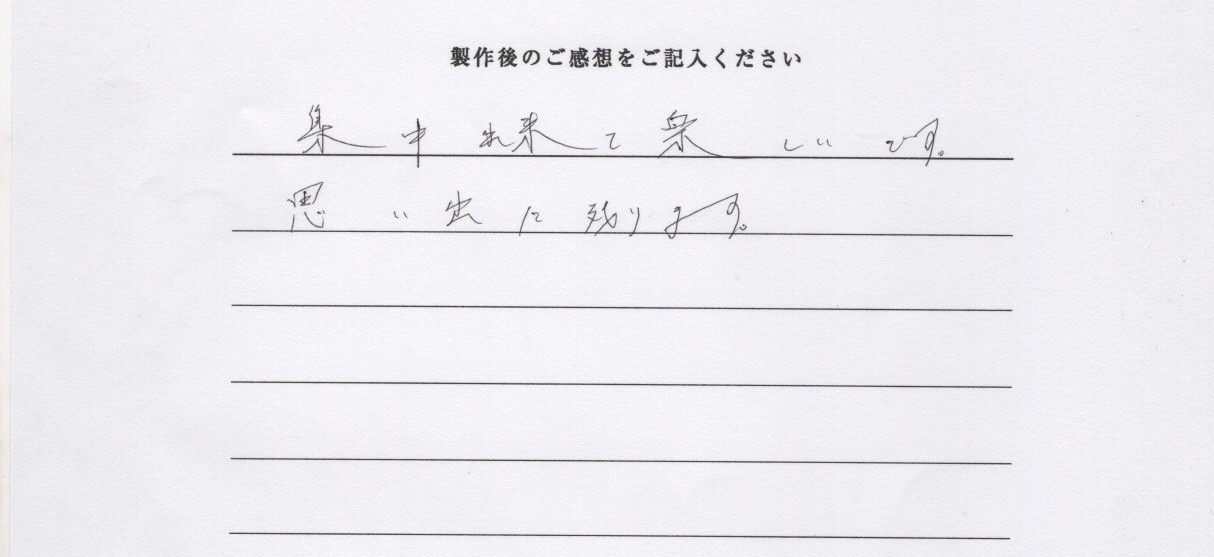 製作後のご感想をご記入ください
集中出来て楽しいです。
思い出に残ります。